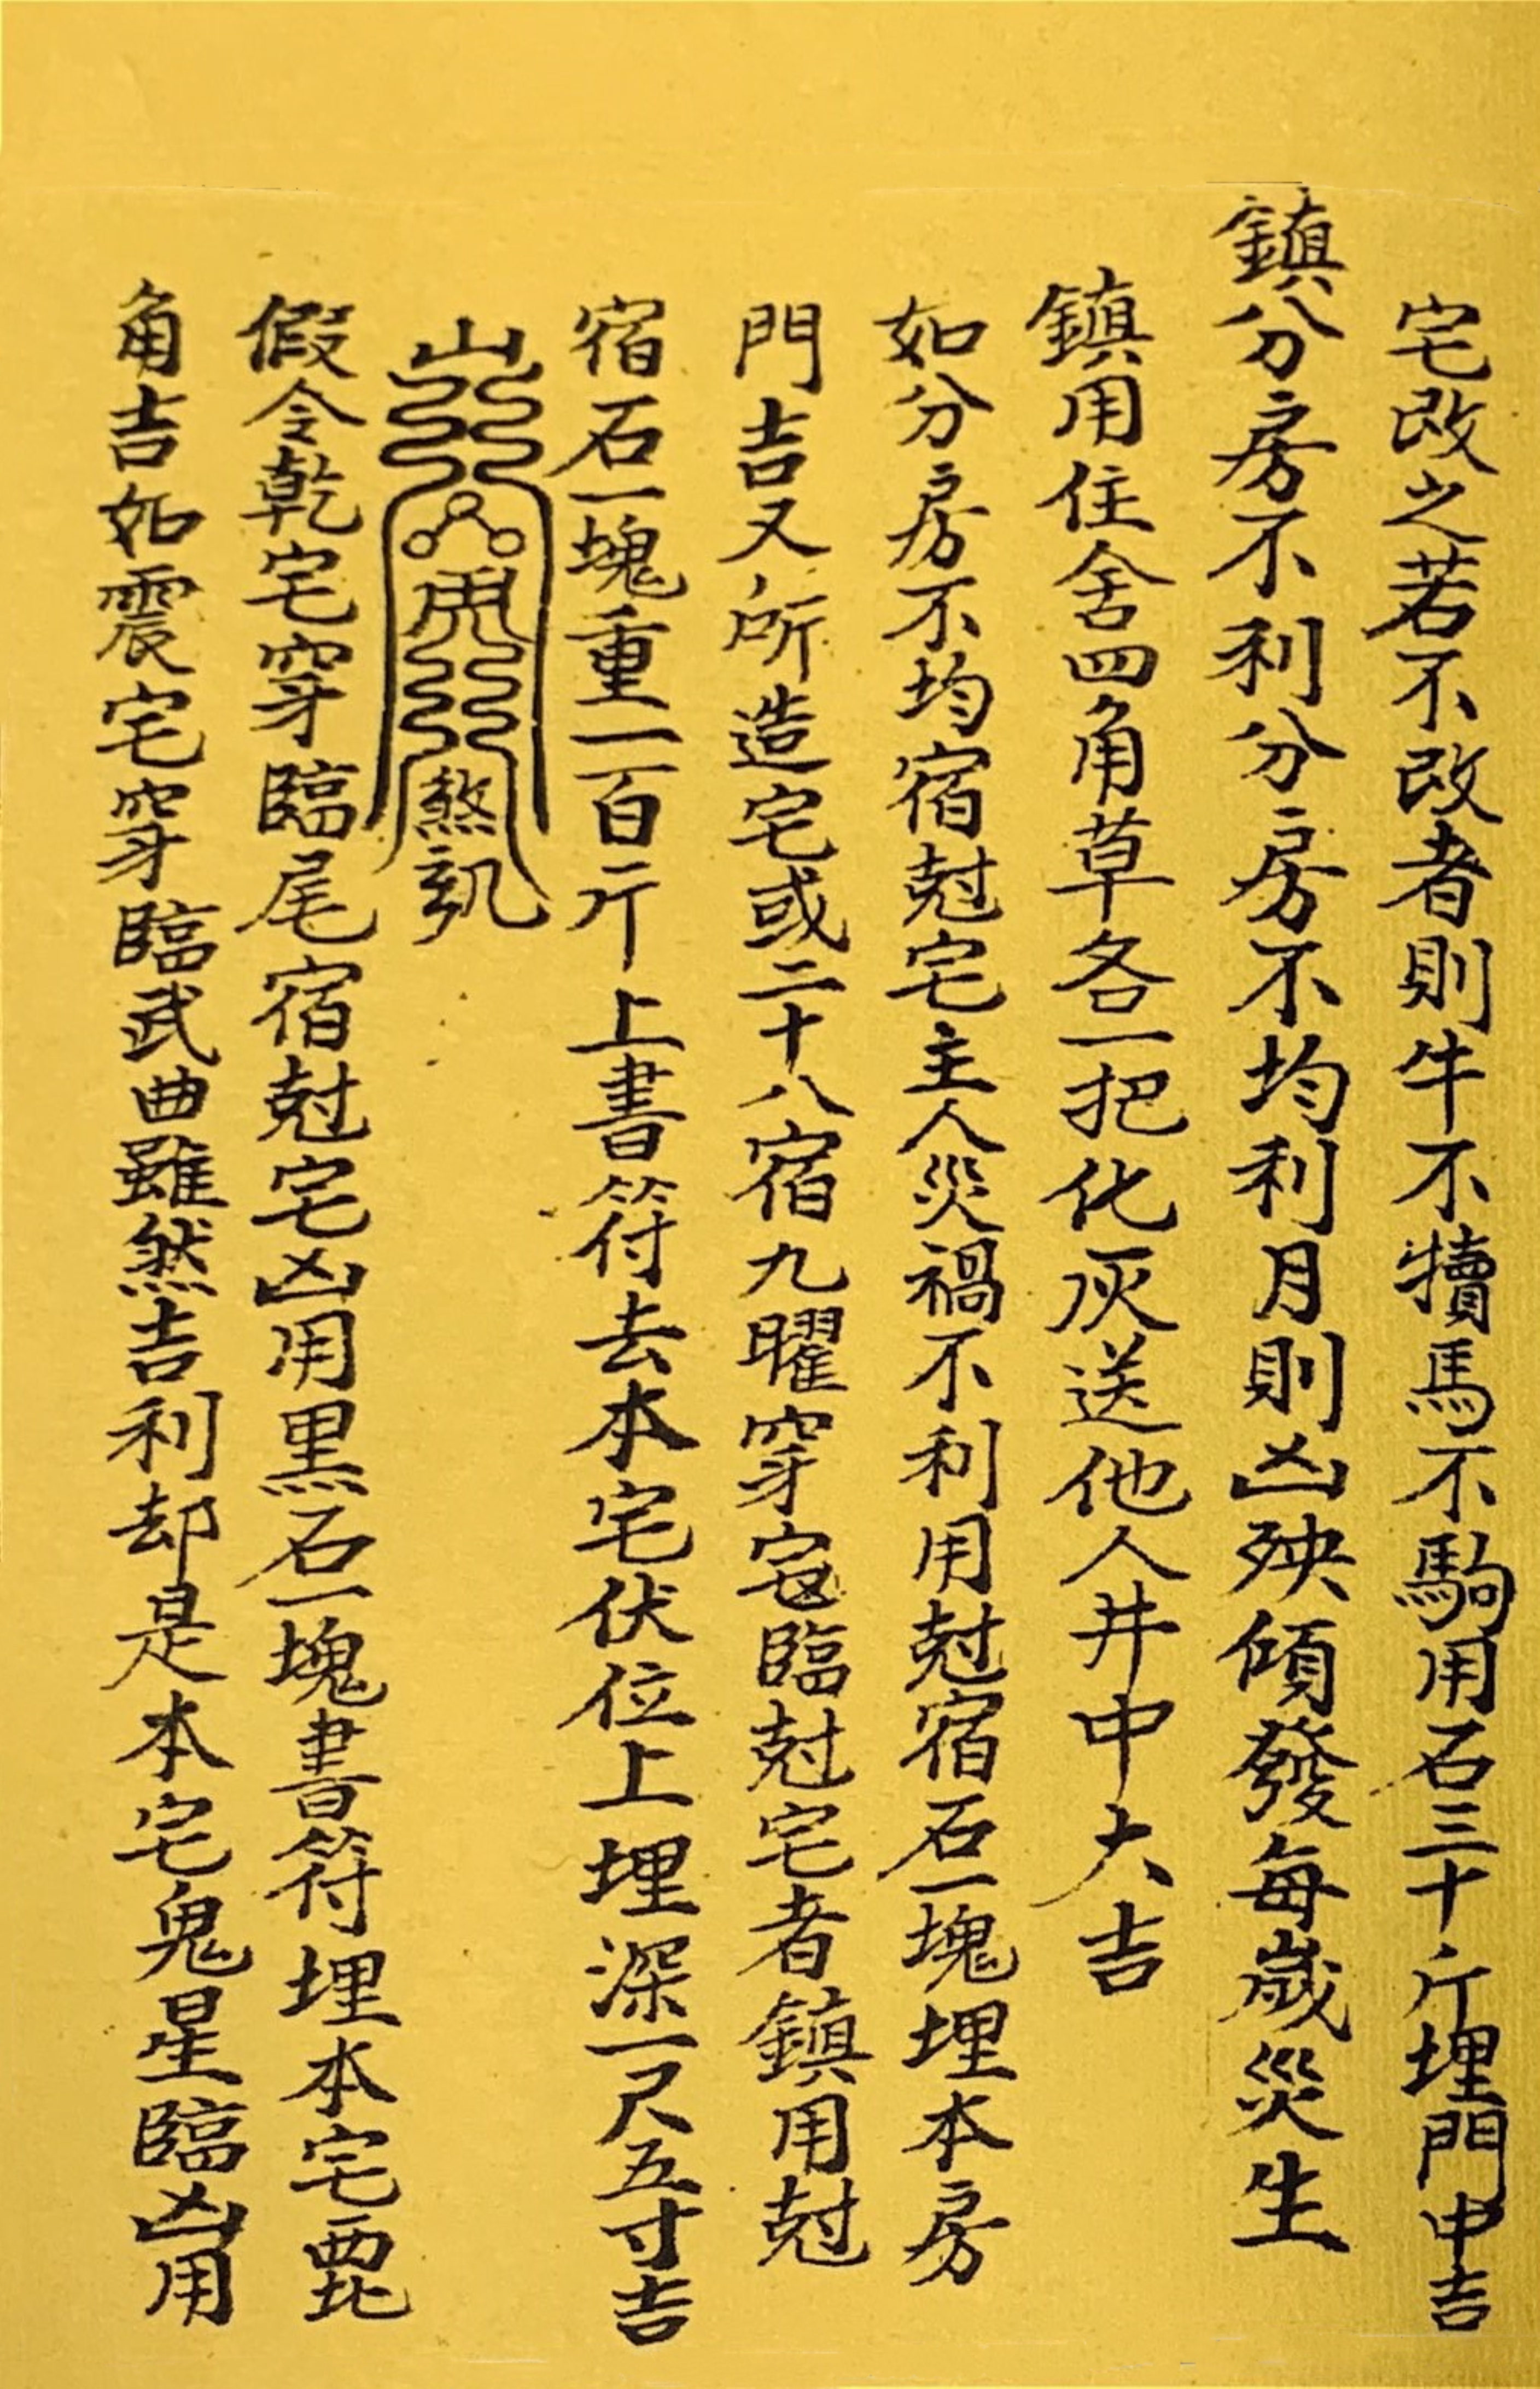 宅改之若不改者則牛不犢馬不駒用石三十斤埋門中吉
鎮分房不利分房不均利月則凶殃傾發每歲災生
鎮用住舍四角草各一把化灰送他人井中大吉
如分房不均宿尅宅主人災禍不利用尅宿石一塊埋本房
門吉又所造宅或二十八宿九曜穿宮臨尅宅者鎮用尅
宿石一塊重一百斤上書符去本宅伏位上埋深一尺五寸吉
山
煞
假令乾宅穿臨尾宿尅宅凶用黑石一塊書符埋本宅西北
角吉如震宅穿臨武曲雖然吉利却是本宅鬼星臨凶用